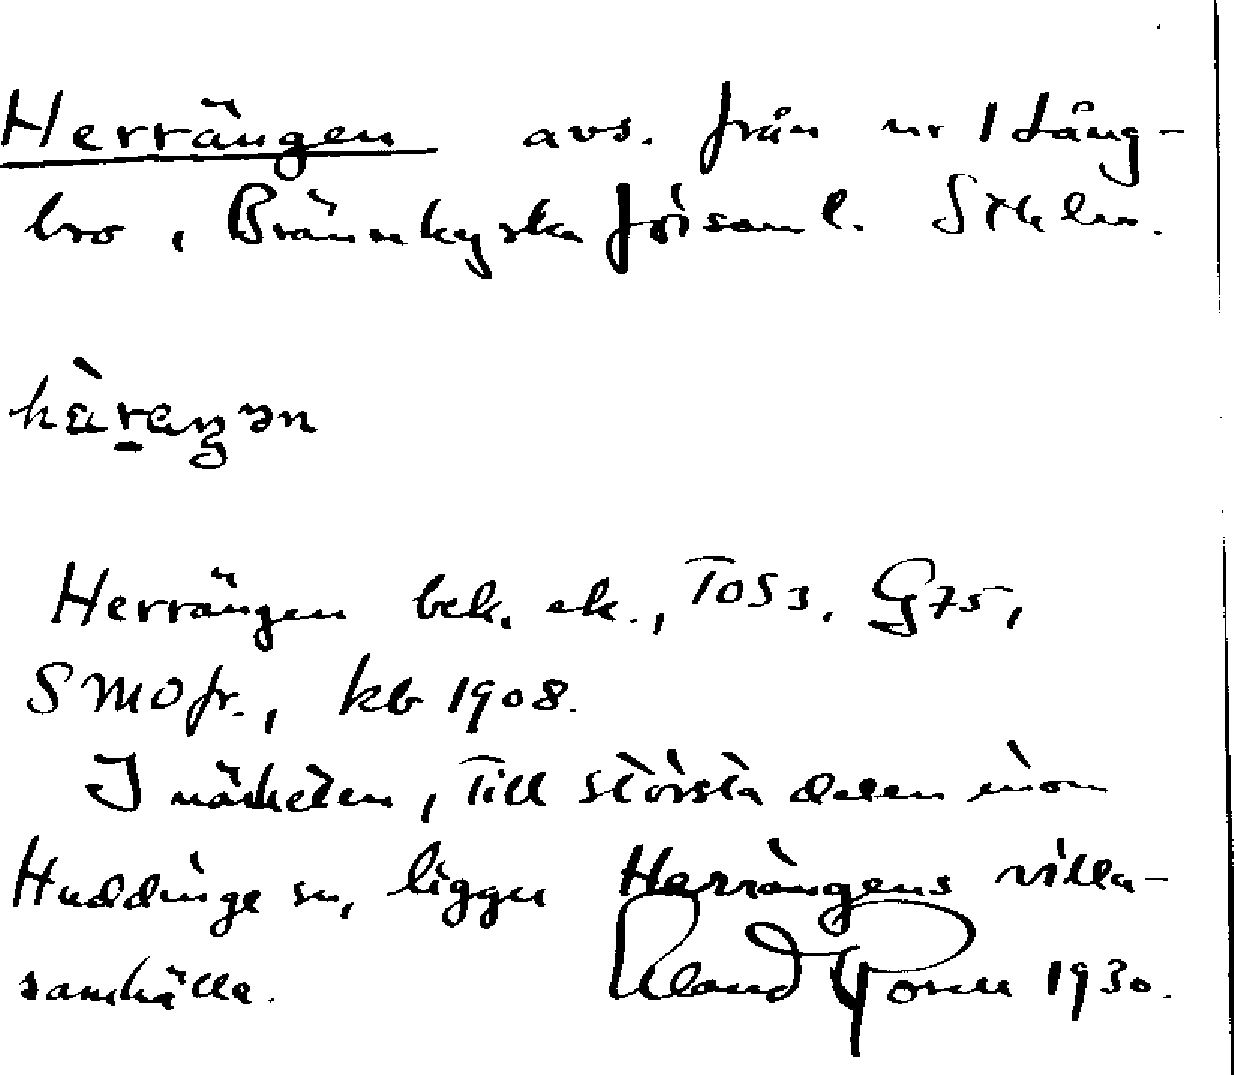 Herrängen avs. från nr 1 Lång-
bro, Brännkyrka församl. Sthlm.
hä̀raŋən
Herrängen bek. ek., TOS 3, G 75,
SMOfr., kb 1908.
I närheten, till största delen inom
Huddinge sn, ligger Herrängens villa-
samhälle. 1930.